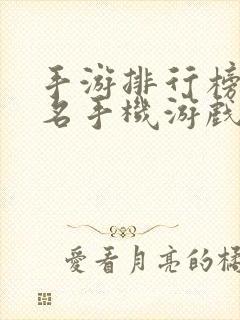 手游排行榜
名手機游戲
愛看月亮的橘